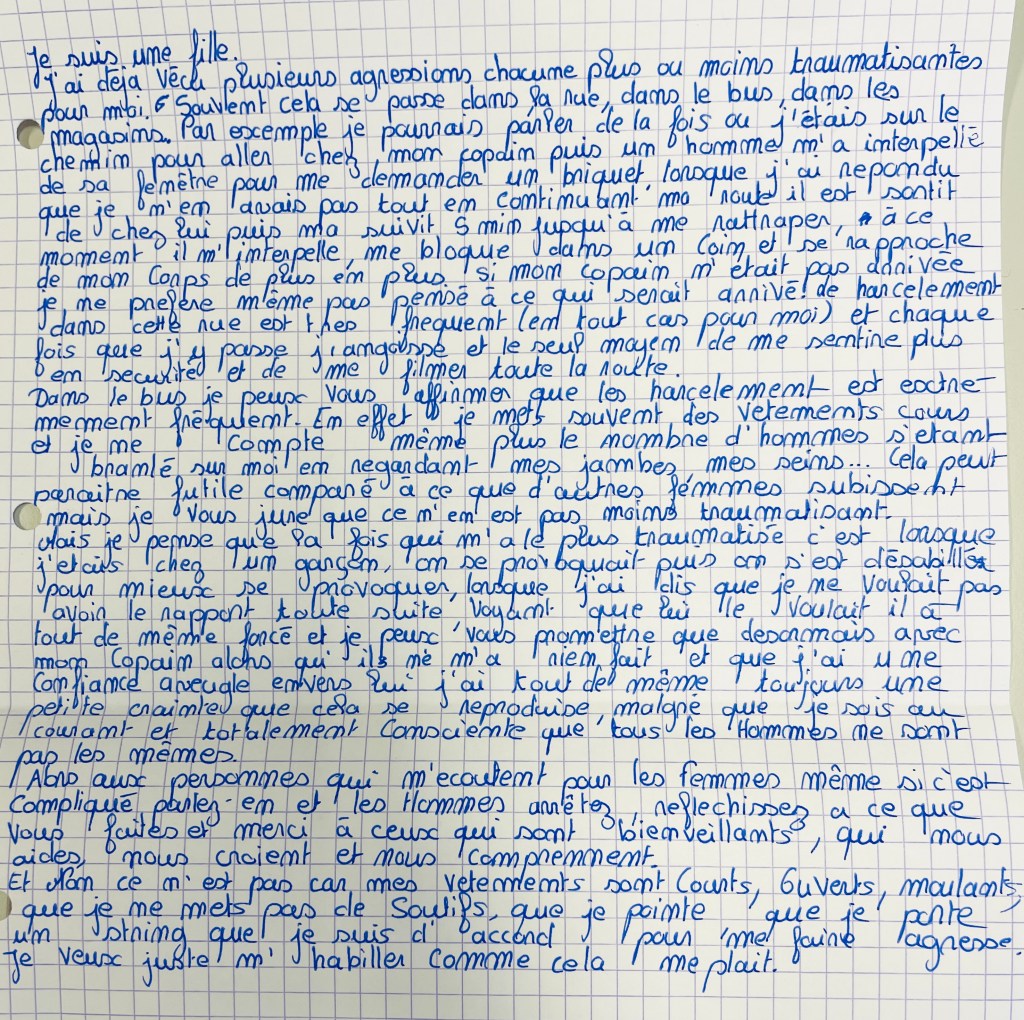 Je suis une fille.
J'ai déja vécu plusieurs agressions chacune plus ou moins traumatisantes
pour moi. Souvent cela se passe dans la rue, dans le bus, dans les
magasins. Par exemple je pourrais parler de la fois ou j'étais sur le
chemin pour aller chez mon copain puis un homme m'a interpellé
de sa fenêtre pour me demander un briquet, lorsque j'ai repondu
que je n'en avais pas tout en continuant ma route il est sortit
de chez lui puis ma suivit 5 min jusqu'à me rattraper, à ce
moment il m'interpelle, me bloque dans un coin et se rapproche
de mon corps de plus en plus. si mon copain n'était pas arrivée
je ne prefère même pas pensé à ce qui serait arrivé! de harcelement
dans cette rue est tres frequent (en tout cas pour moi) et chaque
fois que j'y passe j'angoisse et le seul moyen de me sentire plus
en securité et de me filmer toute la route.
Dans le bus je peux vous affirmer que les harcelement est extre-
mement fréquent. En effet je mets souvent des vetements cours
et je ne compte même plus le nombre d'hommes s'etant
branlé sur moi en regardant mes jambes, mes seins... Cela peut
paraitre futile comparé à ce que d'autres fémmes subissent
mais je vous jure que ce n'en est pas moins traumatisant.
Mais je pense que la fois qui m'a le plus traumatisé c'est lorsque
j'etais chez un garçon, on se provoquait puis on s'est désabillé
pour mieux se provoquer, lorsque j'ai dis que je ne voulait pas
avoir le rapport toute suite, voyant que lui le voulait il a
tout de même forcé et je peux vous promettre que desormais avec
mon copain alors qu'ils ne m'a rien fait et que j'ai une
confiance aveugle envers lui j'ai tout de même toujours une
petite crainte que cela se reproduise, malgré que je sois au
courant et totalement consciente que tous les Hommes ne sont
pas les mêmes.
Alors aux personnes qui m'ecoutent pour les femmes même si c'est
compliqué parlez-en et les Hommes arrêtez, reflechissez a ce que
vous faites et merci à ceux qui sont bienveillants, qui nous
aides, nous croient et nous comprennent.
Et Non ce n'est pas car mes vetements sont Courts, Ouverts, moulants,
que je ne mets pas de Soutifs, que je pointe que je porte
un string que je suis d'accord pour me faire agresse.
Je veux juste m'habiller comme cela me plait.